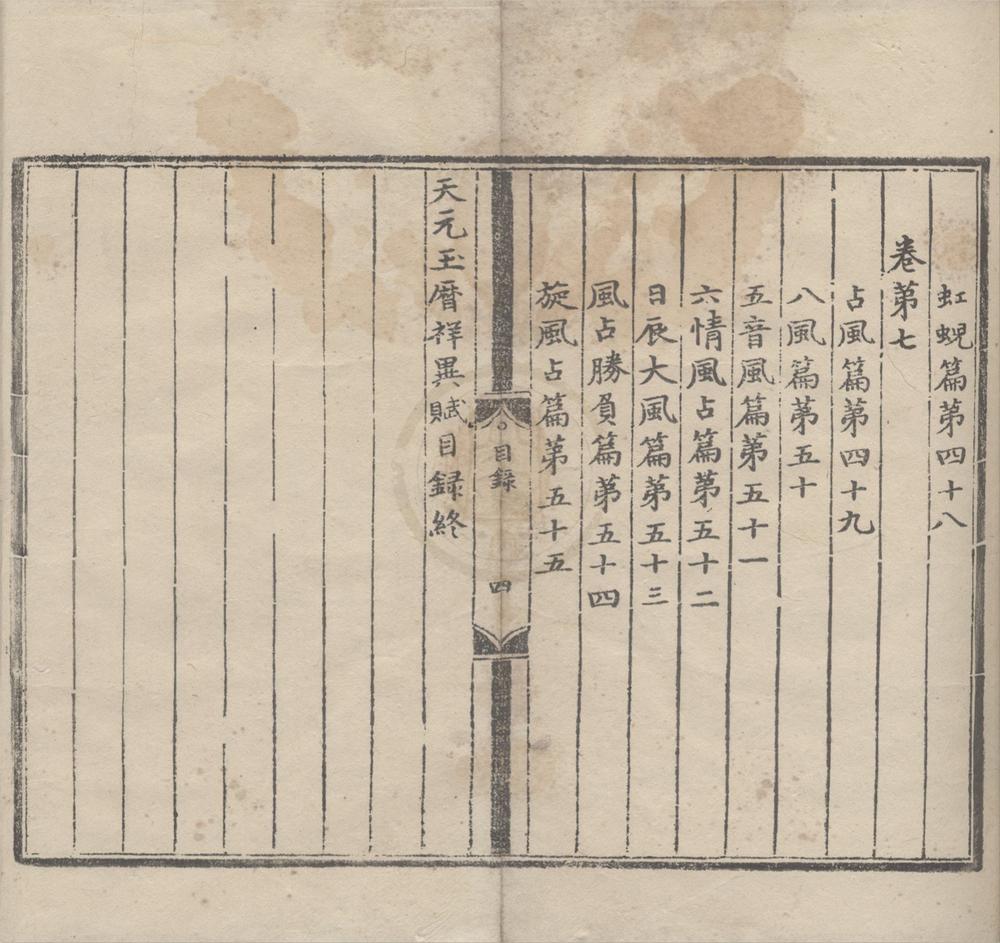 虹蜺篇第四十八
卷第七
占風篇第四十九
八風篇第五十
五音風篇第五十一
六情風占篇第五十二
日辰大風篇第五十三
風占勝負篇第五十四
旋風占篇第五十五
目録
四
天元玉曆祥異賦目録終